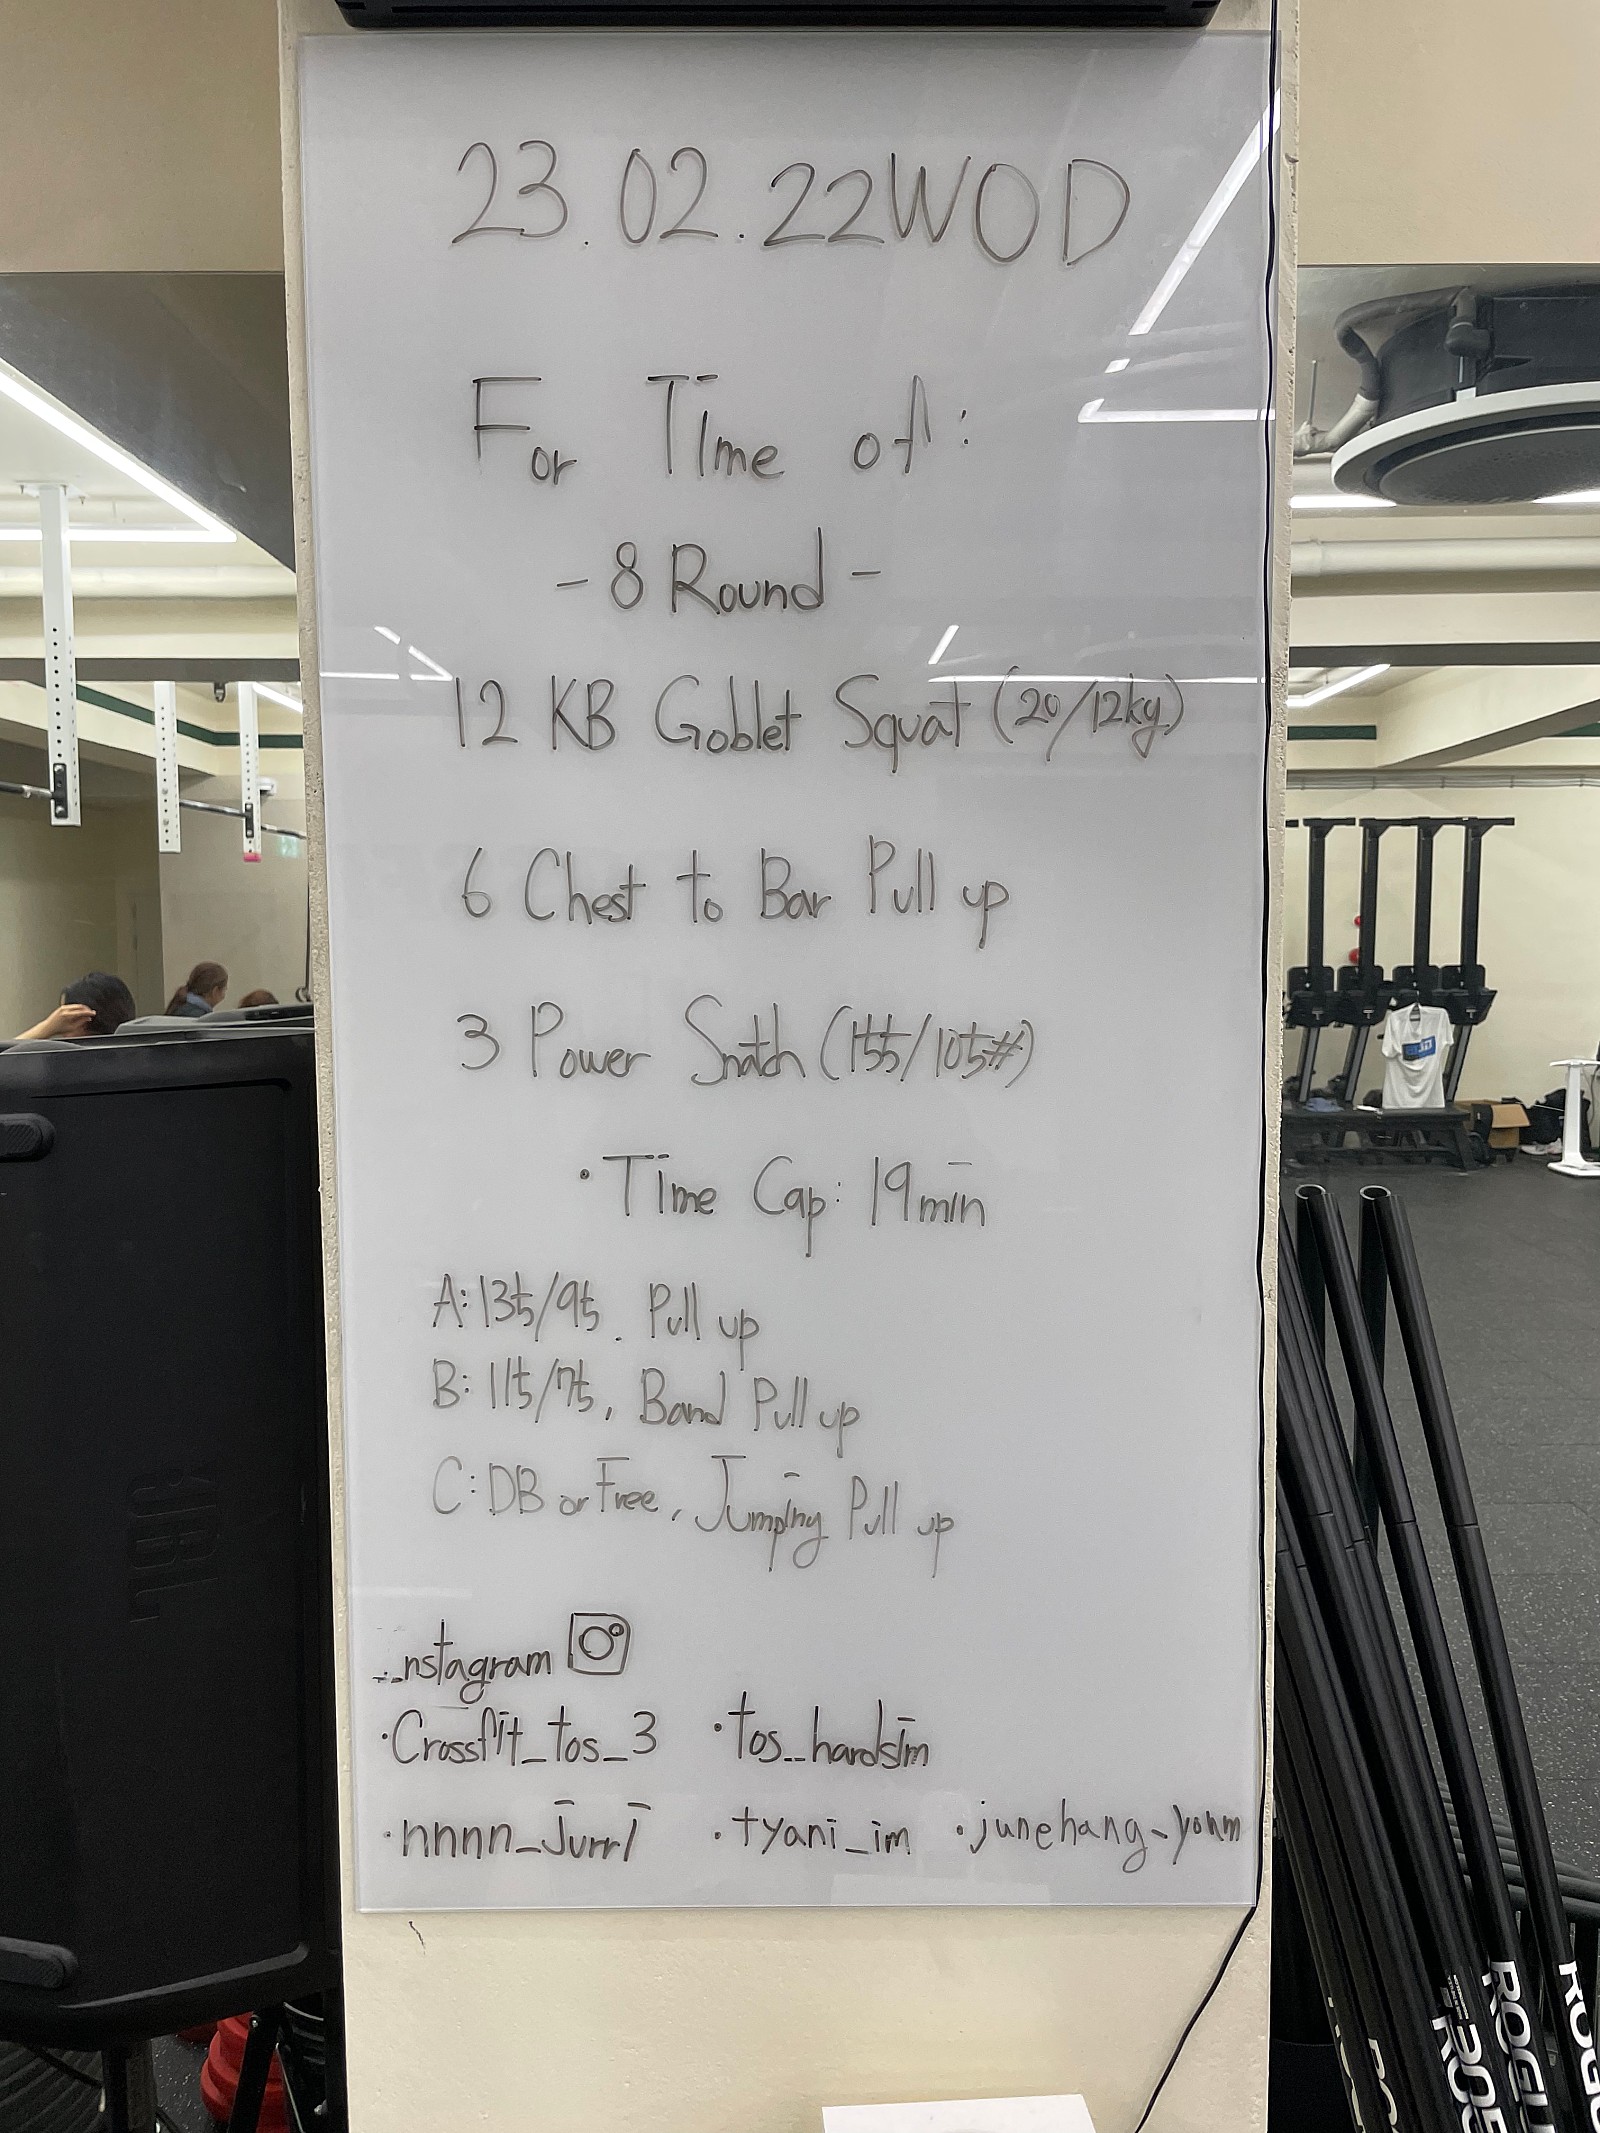 23.02.22WOD
For Time of:
- 8 Round -
12 KB Goblet Squat (20/12kg)
6 Chest to Bar Pull up
3 Power Snatch (155/105#)
• Time Cap: 19min
A: 135/95. Pull up
B: 115/75, Band Pull up
C: DB or Free, Jumping Pull up
Instagram
•Crossfit_tos_3 •tos_hardsim
•nnnn_jurri •tyani_im •junehang_yohm
JBL
ROGUE
ROGUE